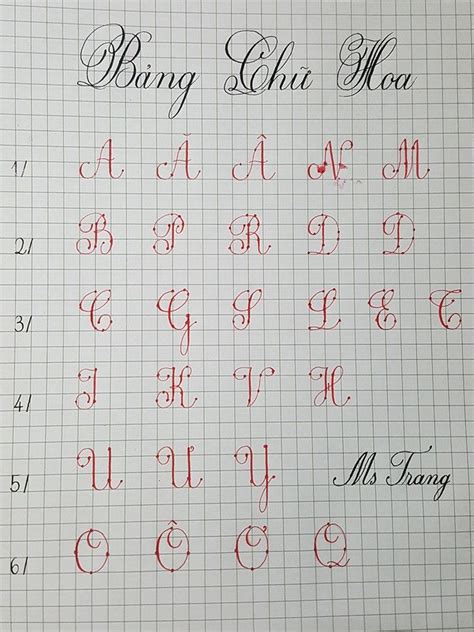 Bảng Chữ Hoa
1/ A Ă Â N M
2/ B P R D D
3/ C G S L E T
4/ I K V H
5/ U U Y
Ms Trang
6/ O Ô Ơ Q